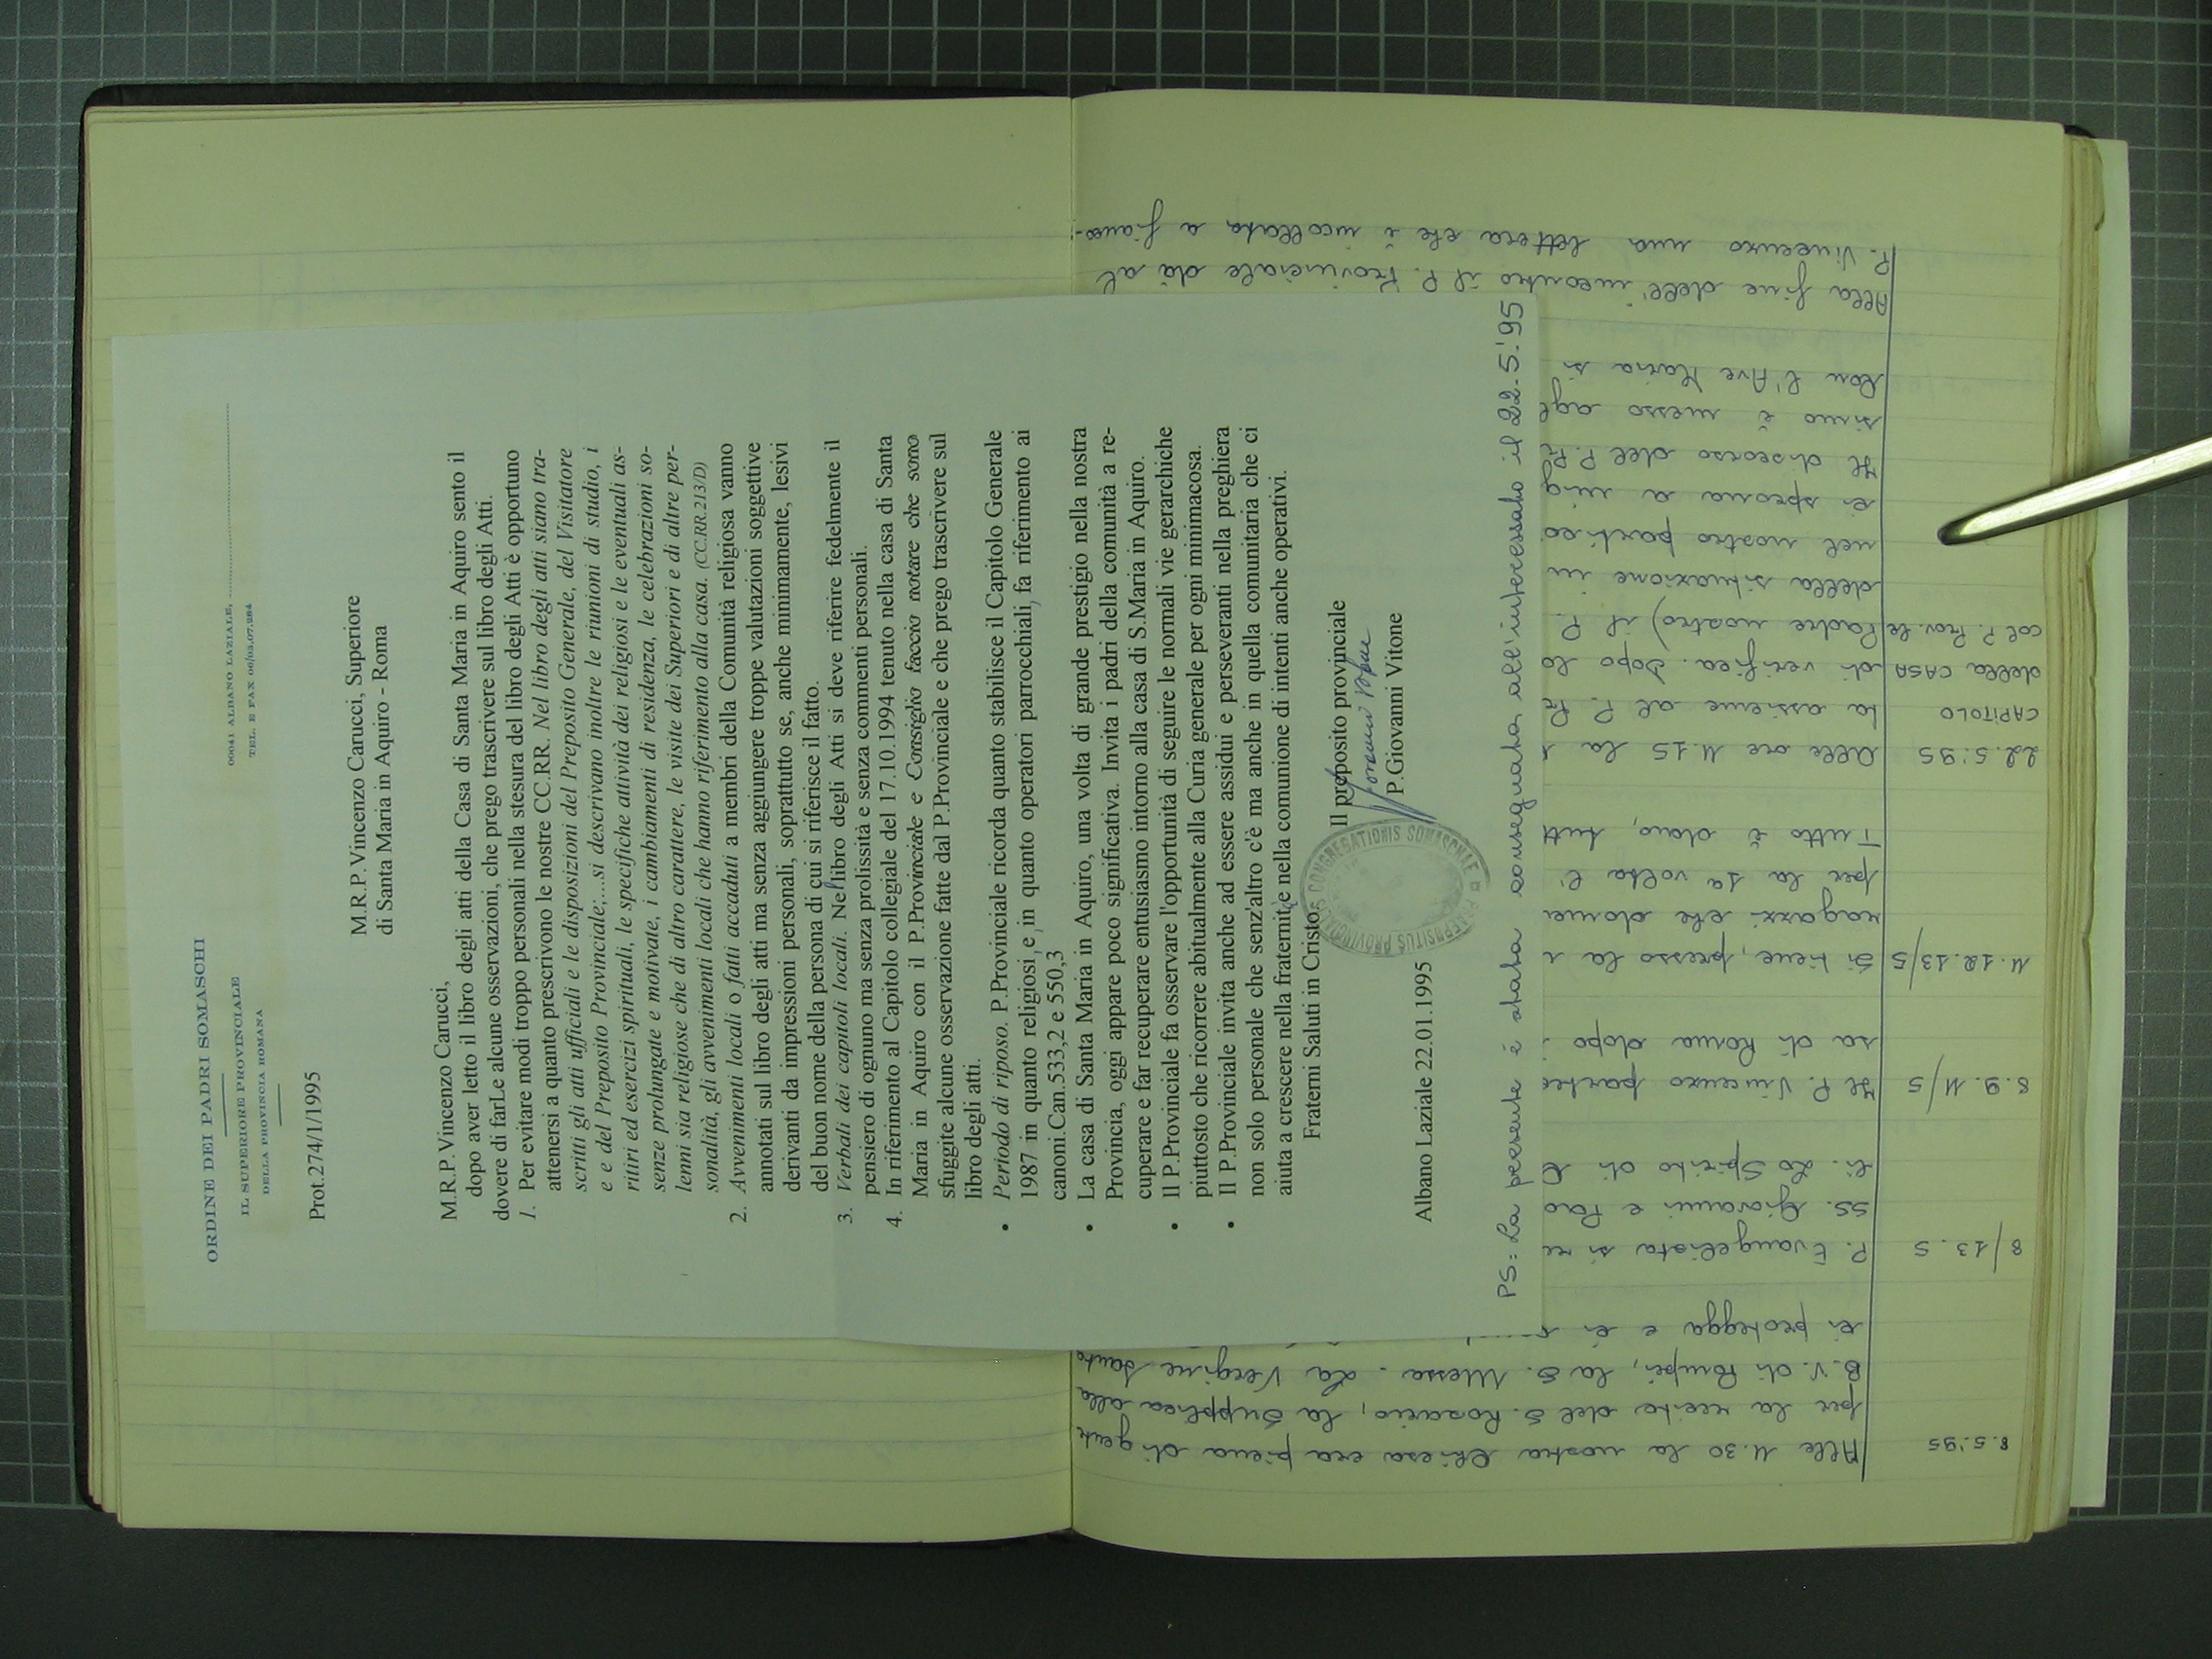 ORDINE DEI PADRI SOMASCHI
IL SUPERIORE PROVINCIALE
DELLA PROVINCIA ROMANA
00041 ALBANO LAZIALE, ....................
TEL. E FAX 06/93.07.284
Prot.274/1/1995
M.R.P.Vincenzo Carucci, Superiore
di Santa Maria in Aquiro - Roma
M.R.P.Vincenzo Carucci,
dopo aver letto il libro degli atti della Casa di Santa Maria in Aquiro sento il
dovere di farLe alcune osservazioni, che prego trascrivere sul libro degli Atti.
1. Per evitare modi troppo personali nella stesura del libro degli Atti è opportuno
attenersi a quanto prescrivono le nostre CC.RR. Nel libro degli atti siano tra-
scritti gli atti ufficiali e le disposizioni del Preposito Generale, del Visitatore
e e del Preposito Provinciale;...si descrivano inoltre le riunioni di studio, i
ritiri ed esercizi spirituali, le specifiche attività dei religiosi e le eventuali as-
senze prolungate e motivate, i cambiamenti di residenza, le celebrazioni so-
lenni sia religiose che di altro carattere, le visite dei Superiori e di altre per-
sonalità, gli avvenimenti locali che hanno riferimento alla casa. (CC.RR.213/D)
2. Avvenimenti locali o fatti accaduti a membri della Comunità religiosa vanno
annotati sul libro degli atti ma senza aggiungere troppe valutazioni soggettive
derivanti da impressioni personali, soprattutto se, anche minimamente, lesivi
del buon nome della persona di cui si riferisce il fatto.
3. Verbali dei capitoli locali. Nel libro degli Atti si deve riferire fedelmente il
pensiero di ognuno ma senza prolissità e senza commenti personali.
4. In riferimento al Capitolo collegiale del 17.10.1994 tenuto nella casa di Santa
Maria in Aquiro con il P.Provinciale e Consiglio faccio notare che sono
sfuggite alcune osservazione fatte dal P.Provinciale e che prego trascrivere sul
libro degli atti.
• Periodo di riposo. P.Provinciale ricorda quanto stabilisce il Capitolo Generale
1987 in quanto religiosi, e, in quanto operatori parrocchiali, fa riferimento ai
canoni.Can.533,2 e 550,3
• La casa di Santa Maria in Aquiro, una volta di grande prestigio nella nostra
Provincia, oggi appare poco significativa. Invita i padri della comunità a re-
cuperare e far recuperare entusiasmo intorno alla casa di S.Maria in Aquiro.
• Il P.Provinciale fa osservare l'opportunità di seguire le normali vie gerarchiche
piuttosto che ricorrere abitualmente alla Curia generale per ogni minimacosa.
• Il P.Provinciale invita anche ad essere assidui e perseveranti nella preghiera
non solo personale che senz'altro c'è ma anche in quella comunitaria che ci
aiuta a crescere nella fraternità e nella comunione di intenti anche operativi.
Fraterni Saluti in Cristo.
Il preposito provinciale
P.Giovanni Vitone
Albano Laziale 22.01.1995
PRAEPOSITUS PROVINCIALIS CONGREGATIONIS SOMASCHAE
PS: La presente è stata consegnata all'interessato il 22-5-'95
8.5.'95 Alle 11.30 la nostra Chiesa era piena di gente
per la recita del S. Rosario, la Supplica alla
B.V. di Pompei, la S. Messa. La Vergine Santa
ci protegga e ci
8/13.5 P. Evangelista si re
SS. Giovanni e Pao
li. Lo Spirito di
8.9.11/5 Il P. Vincenzo parte
sa di Roma dopo
11.12.13/5 Si tiene, presso la
ragazzi che
per la 1a volta l'
Tutto è dono, tutt
22.5.'95 Alle ore 11.15 la
CAPITOLO ta assieme al P.
della CASA di verifica. Dopo lo
col P. Prov.le Padre nostro) il P.
della situazione in
nel nostro partico
ci sprona a
Il discorso del P.
simo è messo agl
Con l'Ave Maria si
Alla fine dell'incontro il P. Provinciale dà al
P. Vincenzo una lettera che è incollata a fianco.